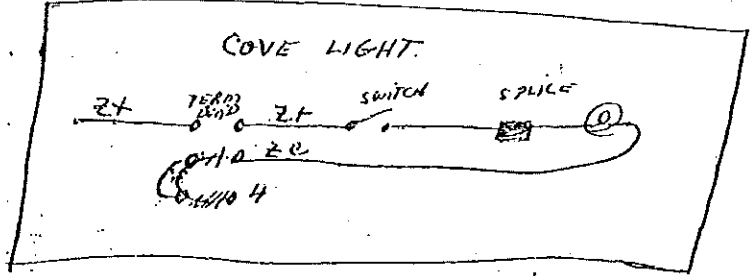 COVE LIGHT.
Z+ TERM Z+ SWITCH SPLICE
Z e
4